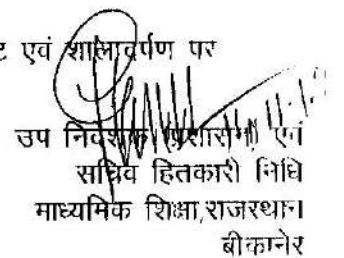 एवं शालादर्पण पर
उप निदेशक (प्रशासन) एवं
सचिव हितकारी निधि
माध्यमिक शिक्षा,राजस्थान
बीकानेर